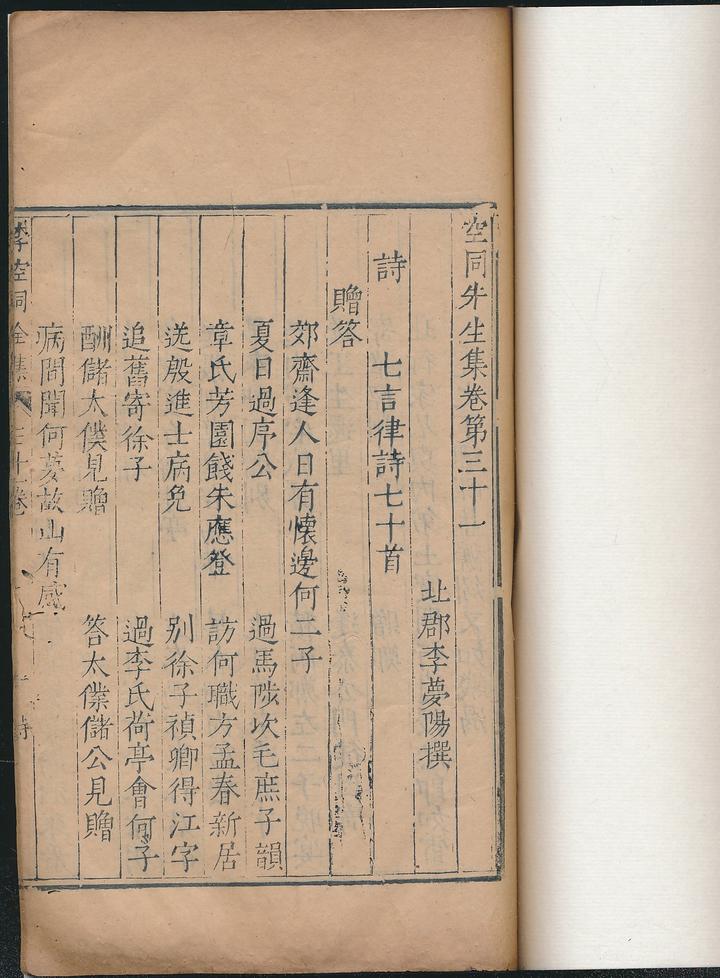 空同先生集卷第三十一
北郡李夢陽撰
詩　七言律詩七十首
贈答
郊齋逢人日有懷邊何二子
夏日過序公　過馬陟坎毛庶子韻
章氏芳園餞朱應登　訪何職方孟春新居
送殷進士病免　别徐子禎卿得江字
追舊寄徐子　過李氏荷亭會何子
酬儲太僕見贈　答太僕儲公見贈
病間聞何夢故山有感
李空同全集　三十一卷　詩